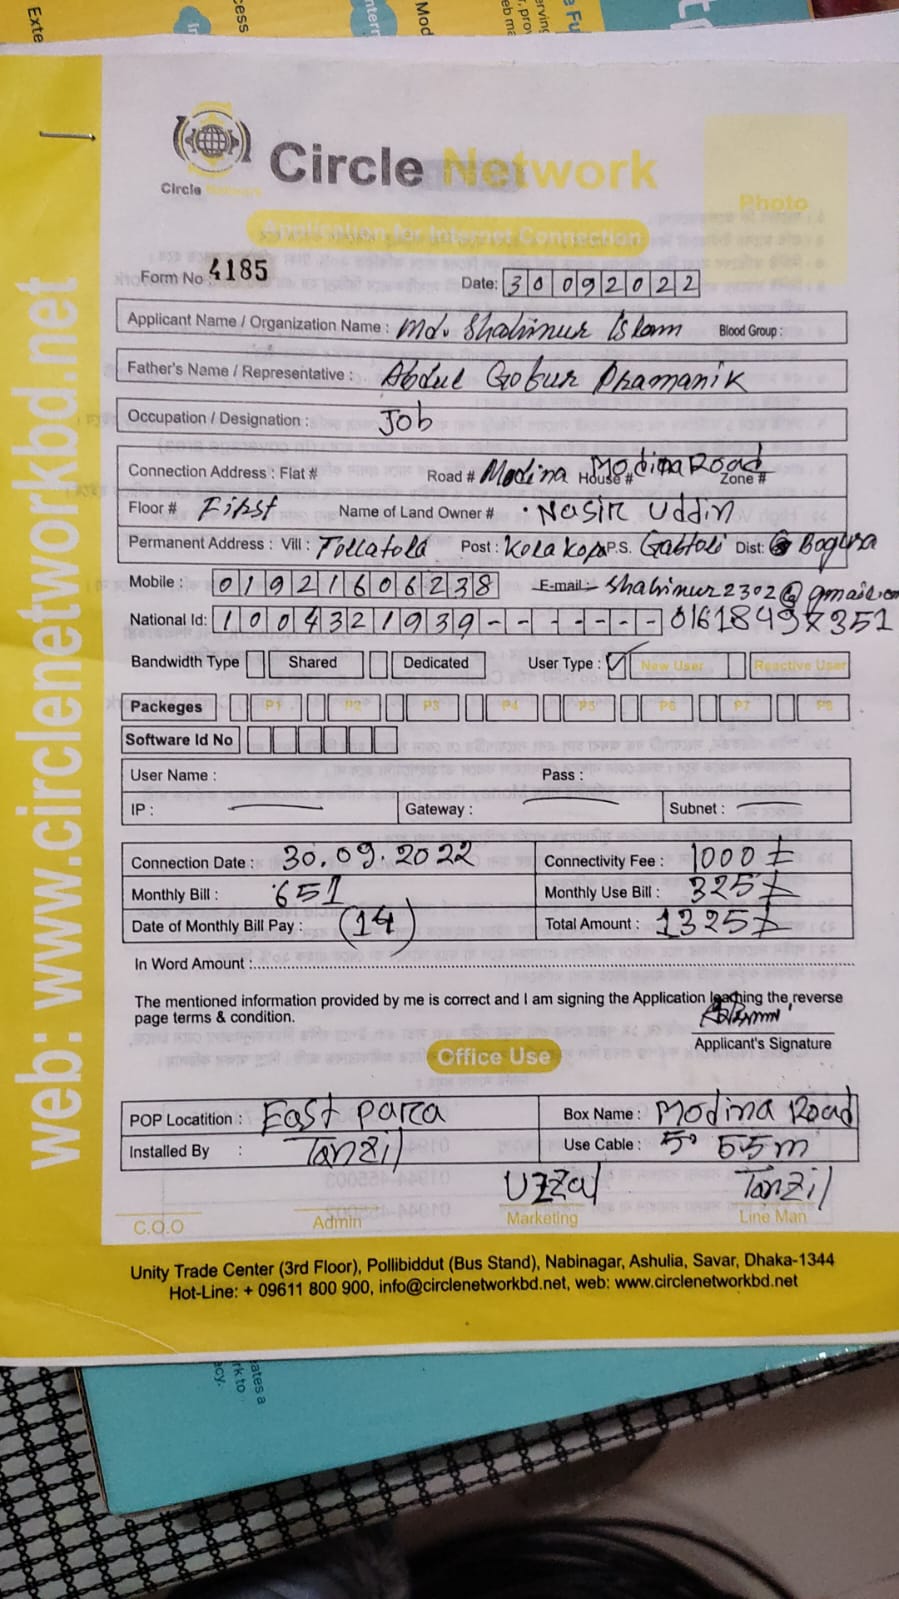 Circle Network
Circle Network
Photo
Application for Internet Connection
Form No 4185
Date: 30092022
Applicant Name / Organization Name : Md. Shahinur Islam Blood Group :
Father's Name / Representative : Abdul Gofur Pramanik
Occupation / Designation : Job
Connection Address : Flat # Road # Modina House # Modina Road Zone #
Floor # First Name of Land Owner # Nasir Uddin
Permanent Address : Vill : Tollatola Post : Kola Kopa P.S. Gabtoli Dist: Bogura
Mobile : 01921606238 E-mail:- shahinur2302@gmail.com
National Id: 1004321939-------
Bandwidth Type Shared Dedicated User Type : New User Reactive User
Packeges P1 P2 P3 P4 P5 P6 P7 P8
Software Id No
User Name : Pass :
IP : Gateway : Subnet :
Connection Date : 30.09.2022 Connectivity Fee : 1000
Monthly Bill : 651 Monthly Use Bill : 325
Date of Monthly Bill Pay : (14) Total Amount : 1325
In Word Amount :
The mentioned information provided by me is correct and I am signing the Application leaching the reverse
page terms & condition.
Applicant's Signature
Office Use
POP Locatition : East Para Box Name : Modina Road
Installed By : Tanzil Use Cable : 55m
Uzzal Tanzil
C.O.O Admin Marketing Line Man
Unity Trade Center (3rd Floor), Pollibiddut (Bus Stand), Nabinagar, Ashulia, Savar, Dhaka-1344
Hot-Line: + 09611 800 900, info@circlenetworkbd.net, web: www.circlenetworkbd.net
web: www.circlenetworkbd.net